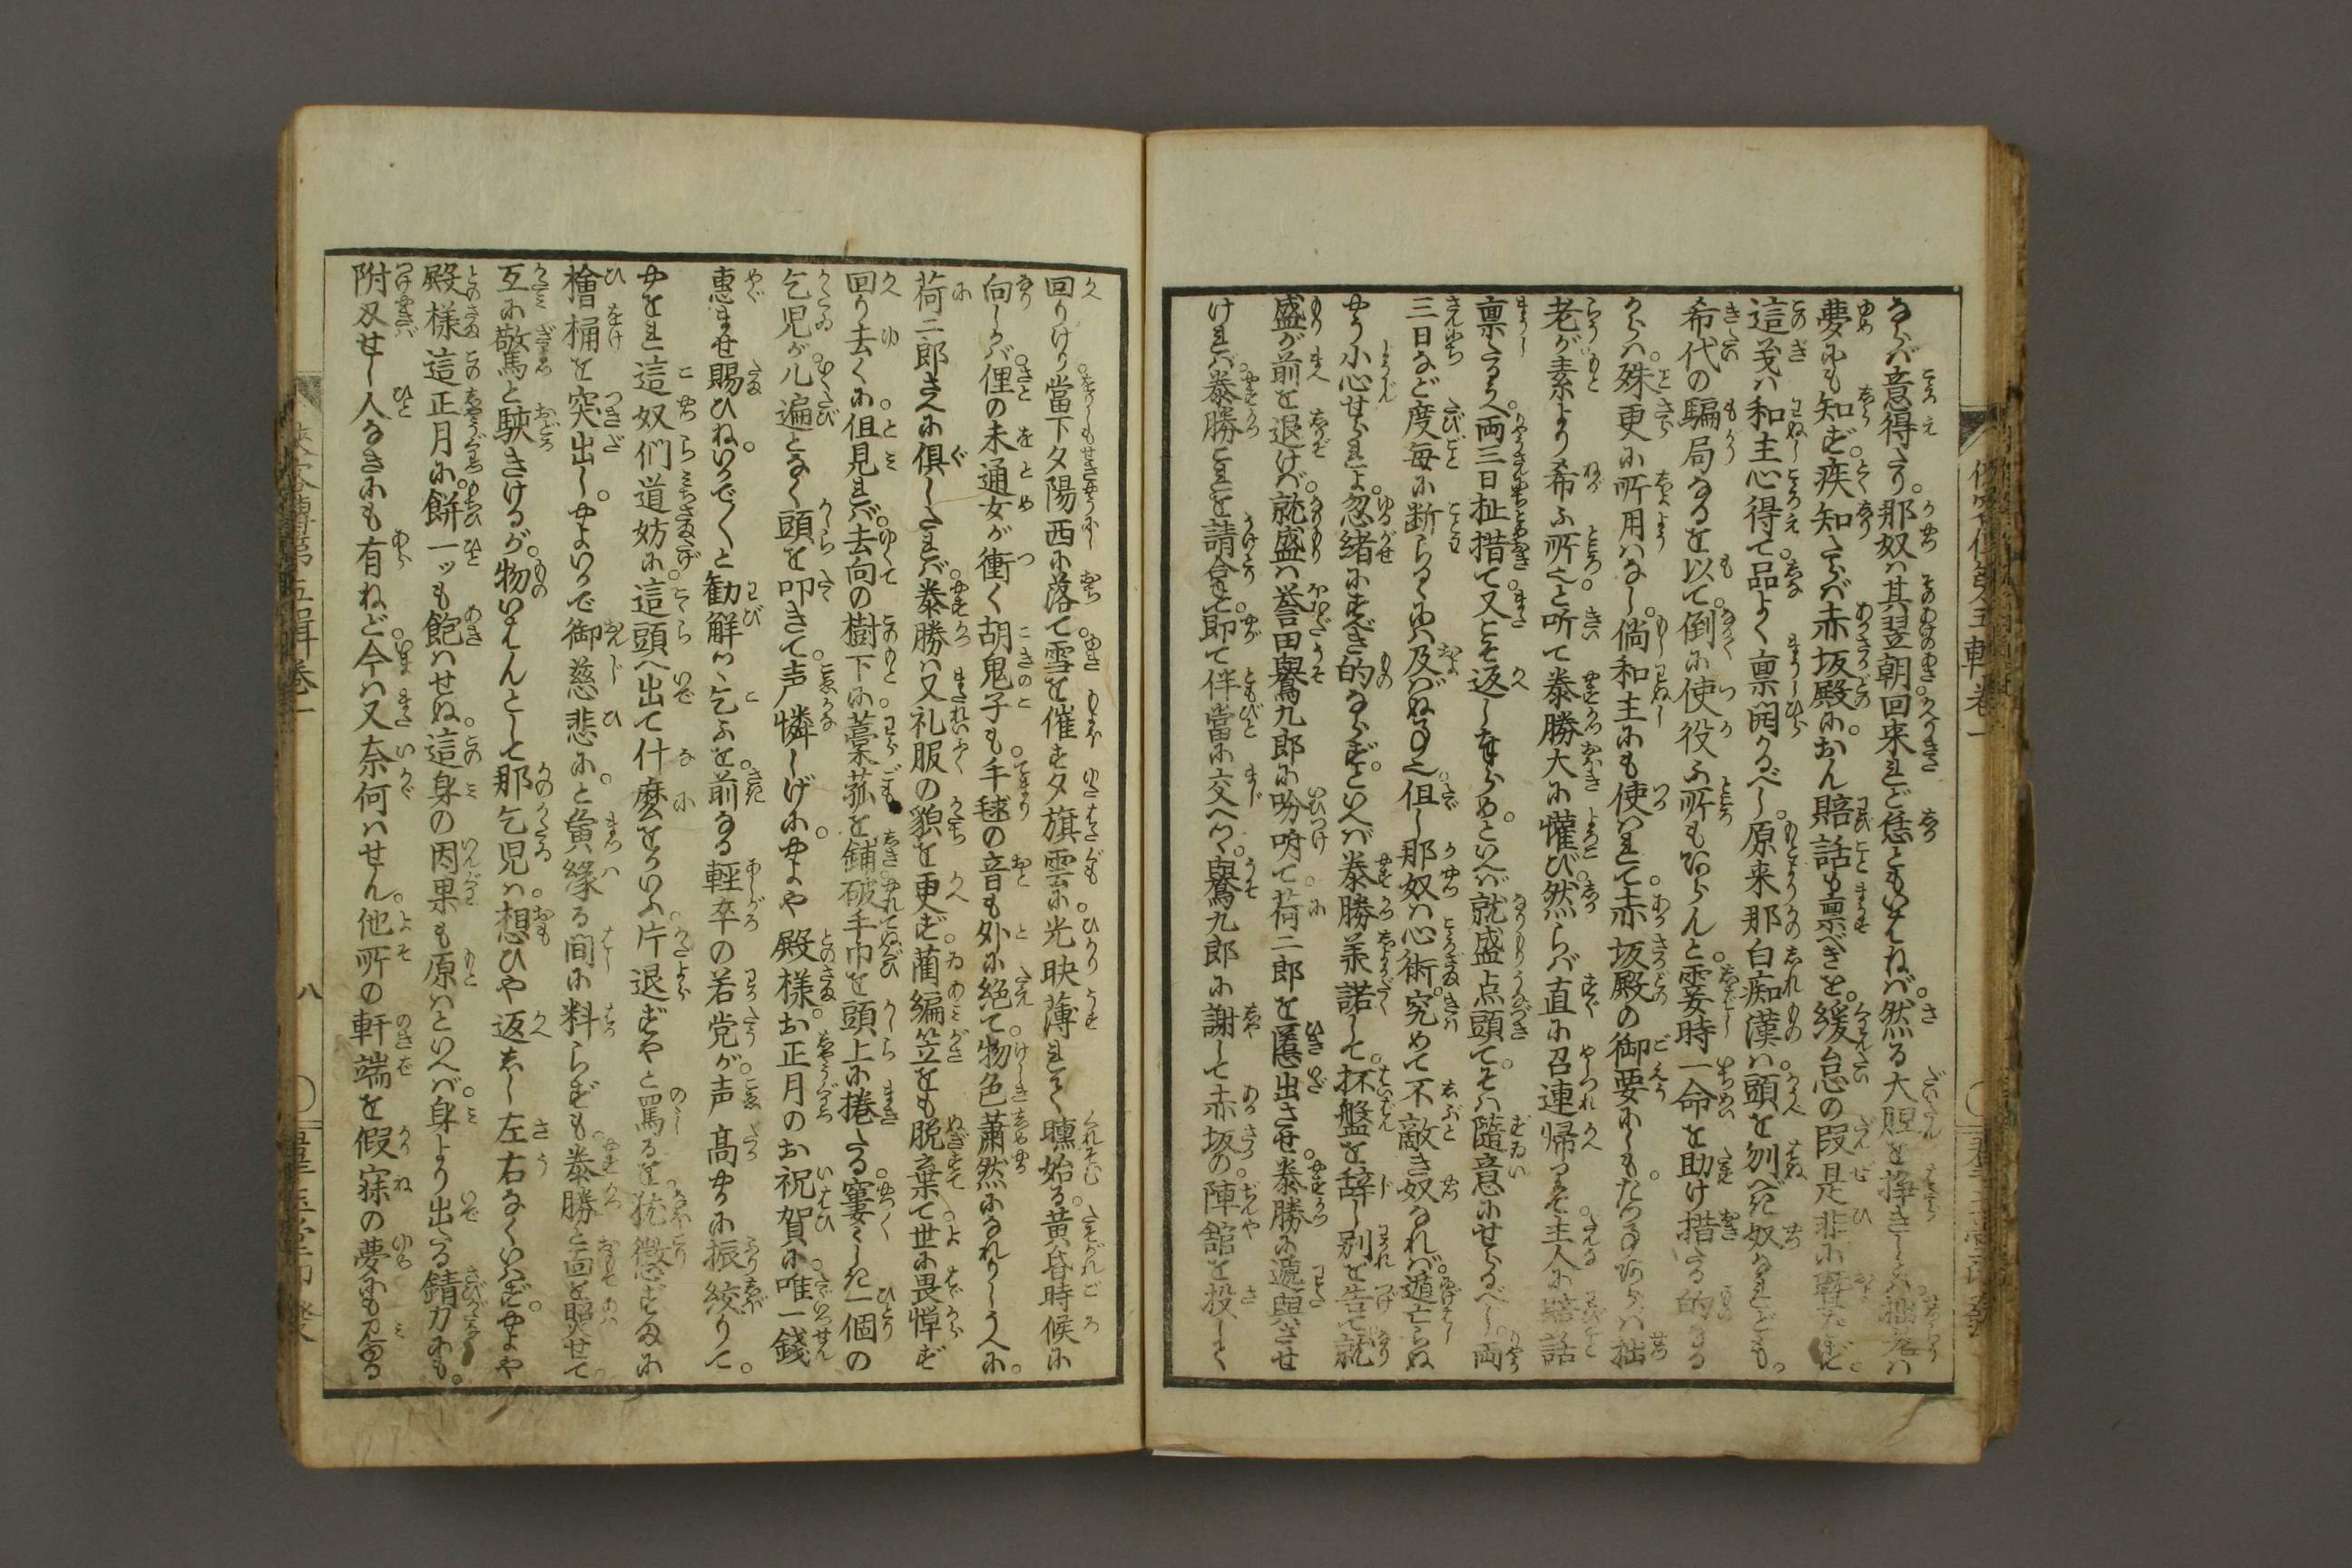 ならバ意得たり。那奴ハ其翌朝回来れど恁ともいはねバ。然る大胆を挣きしとハ。拙者ハ
夢にも知ず。疾知たらバ赤坂殿に。おん賠話も禀べきを。緩怠の段是非に
這義ハ和主心得て。品よく禀開くべし。原来那白痴漢ハ。頭を刎べき奴なれども。
希代の騙局なるを以て。倒に使役ふ所もあらんと。霎時一命を助け措たる的なる
からハ。殊更に所用ハなし。倘和主にも使ハれて。赤坂殿の御要にもたつ事あらハ。拙
老が素より希ふ所也と听て泰勝大に懽び。然らバ直に召連帰りて。主人に賠話
禀たるうへ。両三日扯措て。又こそ返しまゐらめ。といへバ就盛点頭て。そハ隨意にせらるべし。両
三日など度毎に断らるゝにハ及バぬ事也。但し那奴ハ心術。究めて不敵き奴なれバ。遁亡らぬ
やう小心せられよ。忽緒にすべき的ならず。といへバ泰勝羕諾して。抔盤を辞し別を告て。就
盛が前を退けバ。就盛ハ誉田鸒九郎に吩咐て。荷二郎を牽出させ。泰勝に遞與させ
けれバ。泰勝これを請拿て。即て伴當に交へつ。鸒九郎に謝して赤坂の。陣舘を投して
回りけり。當下夕陽西に落て。雪を催す夕旗雲に。光映薄れて曛始る。黄昏時候に
向しかバ。俚の未通女が衝く胡鬼子も。手毬の音も外に絶て。物色蕭然になれりしうへに。
荷二郎さへに倶したれバ。泰勝ハ又礼服の貌を更ず。藺編笠をも脱棄て。世に畏憚ず
回り去くに。但見れバ。去向の樹下に。藁菰を鋪。破手巾を頭上に捲たる。窶々しき一個の
乞児が。几遍となく頭を叩きて。声憐しげに。やよや殿様。お正月のお祝賀に。唯一錢
惠ませ賜ひね。いかでいかでと勧觧つゝ乞ふを。前なる輕卒の若党が。声高やかに振絞りて。
やをれ這奴們道妨に。這頭へ出て什麼をかいふ。片退ずやと罵るを。犹懲ずまに
檜桶を突出し。やよいかで御慈悲に。と夤縁る間に料らずも。泰勝と面を照せて。
互に驚と駛きけるが。物いはんとして那乞児ハ。想ひや返しゝ左右なくいはず。やよや
殿様。這正月に。餅一ッも飽ハせぬ。這身の因果も原ハといへバ。身より出たる錆刀にも。
附双せし人なきにも有ねど。今ハ又奈何ハせん。他所の軒端を假寐の夢にも見る